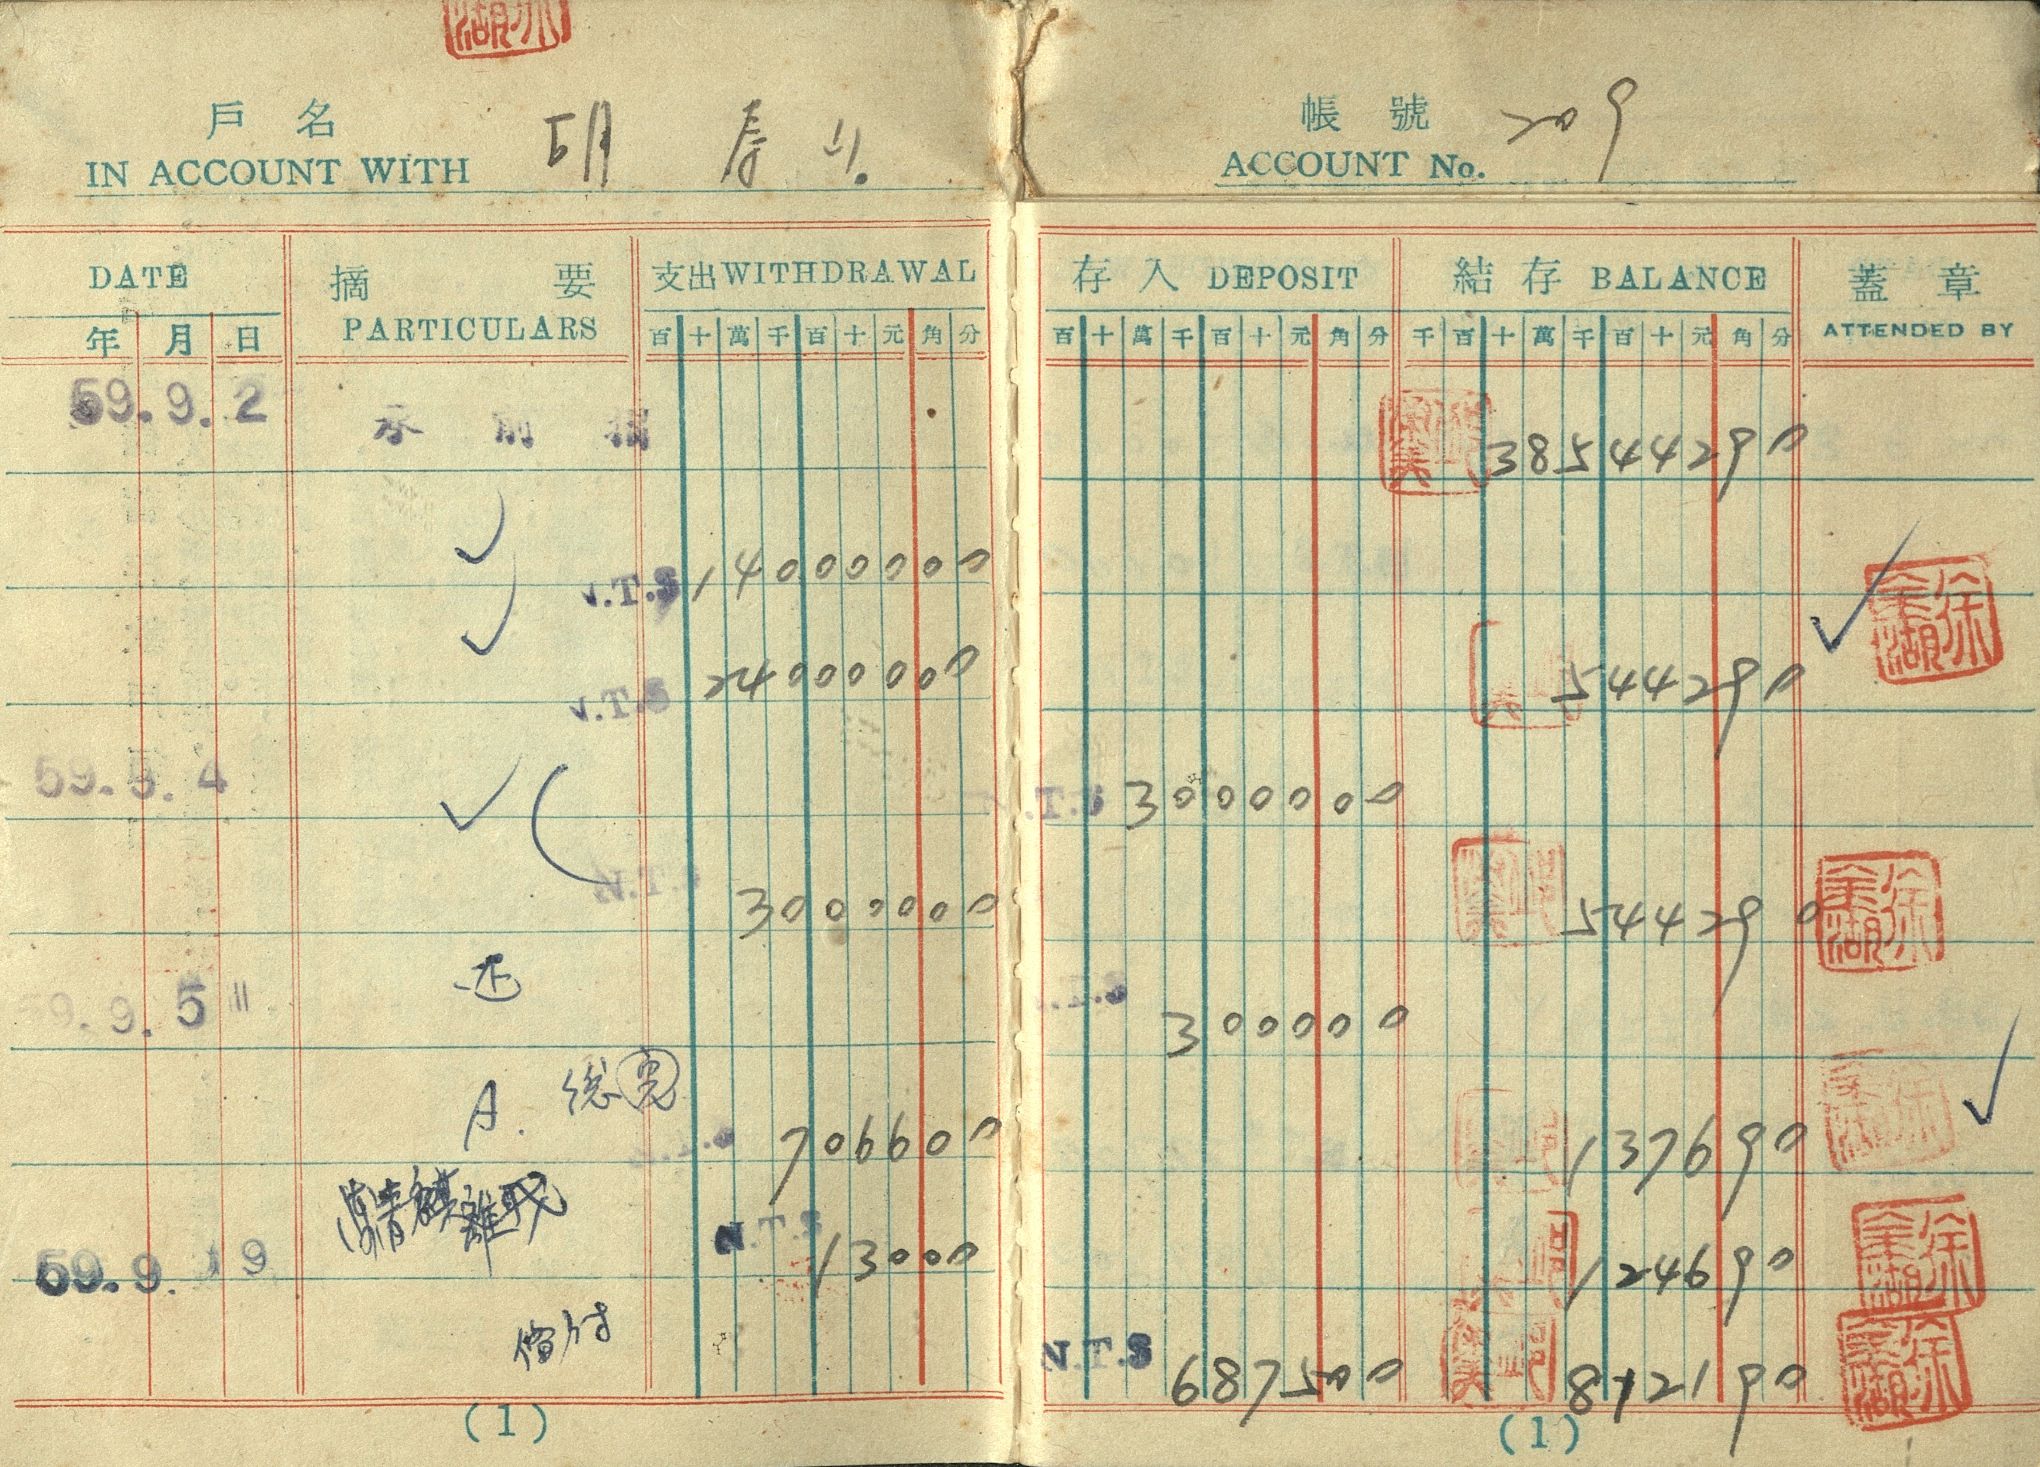 戶名
IN ACCOUNT WITH
帳號 209
ACCOUNT No.
DATE 摘要 支出 WITHDRAWAL 存入 DEPOSIT 結存 BALANCE 蓋章
年 月 日 PARTICULARS 百 十 萬 千 百 十 元 角 分 百 十 萬 千 百 十 元 角 分 千 百 十 萬 千 百 十 元 角 分 ATTENDED BY
59.9.2 承前摘 38544290
N.T.$ 14000000
N.T.$ 24000000 544290
59.9.4 N.T.$ 3000000
N.T.$ 3000000 544290
59.9.5 N.T.$ 300000
A. 總 N.T.$ 706600 137690
N.T.$ 13000 124690
59.9.19
N.T.$ 687500 812190
(1) (1)